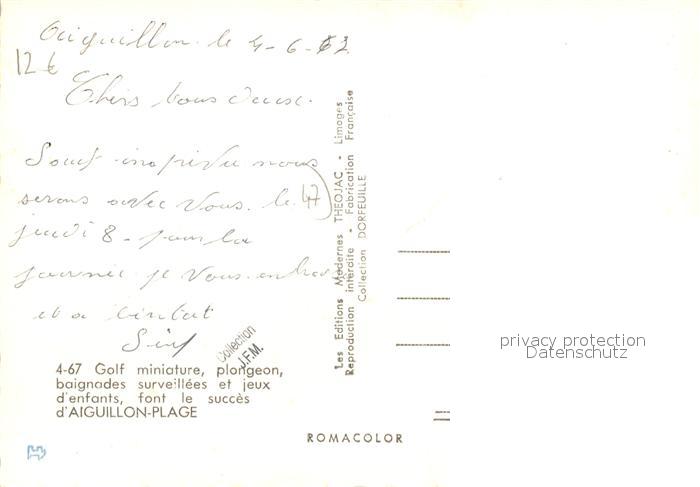 Aiguillon le 4-6-
12 €
Chers tous deux.
Sauf imprévu nous
serons avec vous le
47
jeudi 8 - pour la
journée je vous
et a bientot
4-67 Golf miniature, plongeon,
baignades surveillées et jeux
d'enfants, font le succès
d'AIGUILLON-PLAGE
Collection
J.F.M.
Les Editions Modernes THEOJAC - Limoges
Reproduction interdite - Fabrication Française
Collection DORFEUILLE
ROMACOLOR
privacy protection
Datenschutz